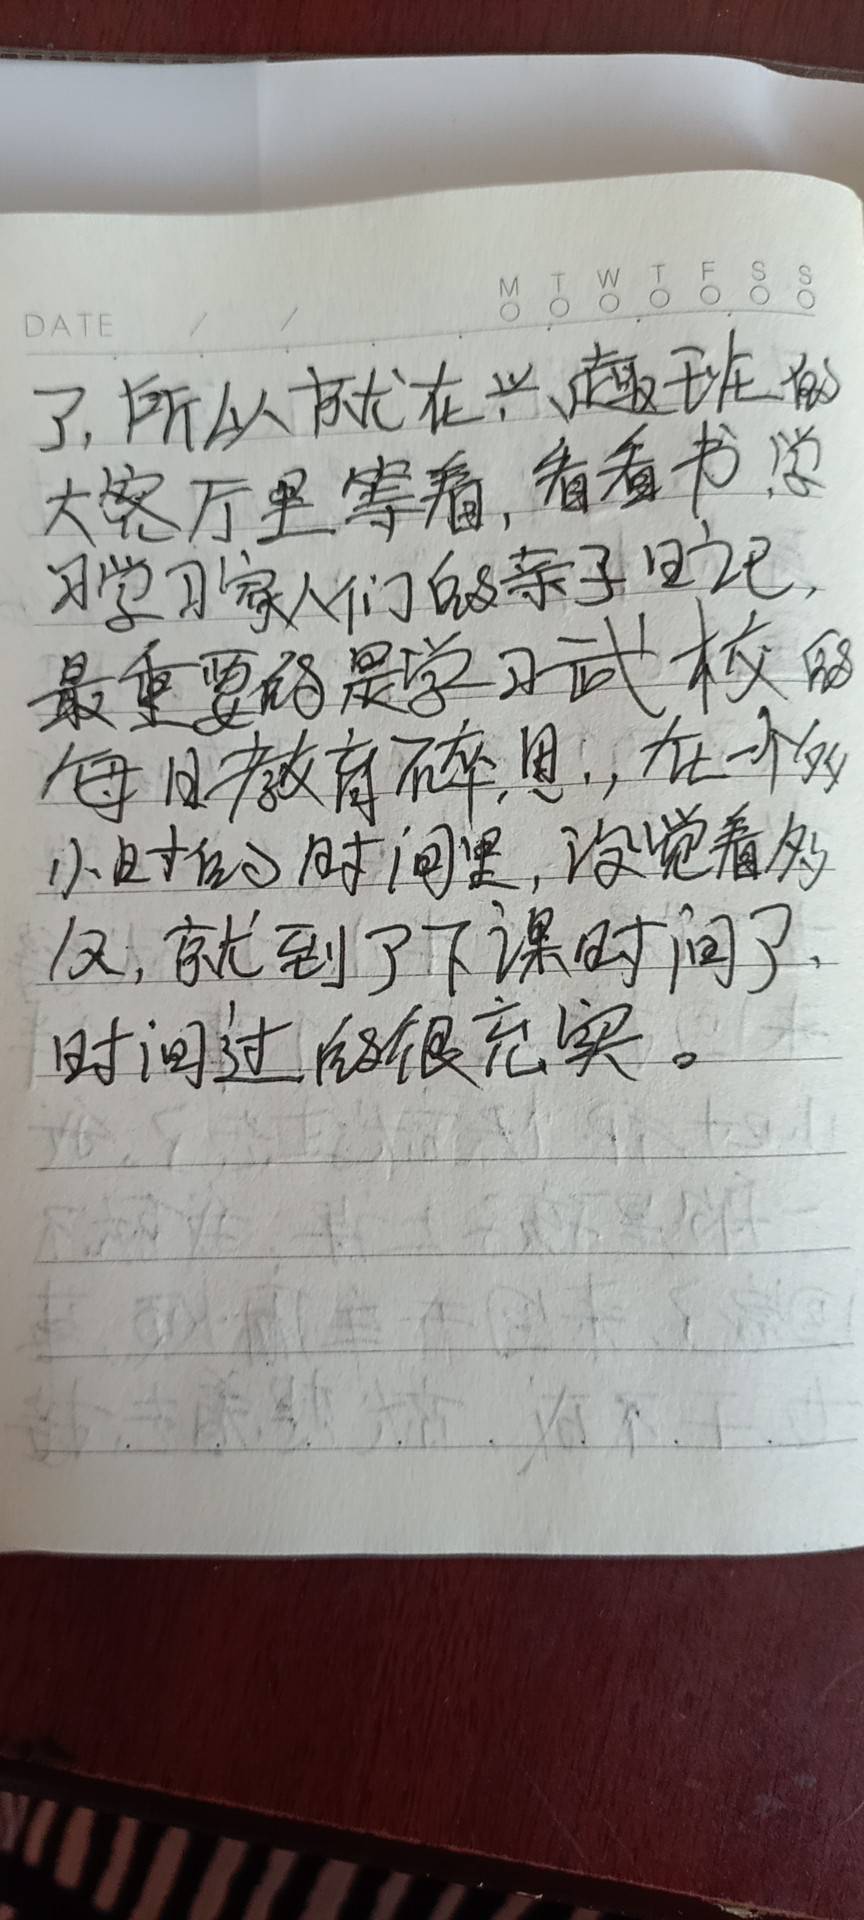 M T W T F S S
DATE / /
了,所以就在兴趣班的
大客厅里等着,看看书,学
习学习家人们的亲子日记,
最重要的是学习武校的
每日教育碎思,,在一个多
小时的时间里,没觉着多
久,就到了下课时间了,
时间过的很充实。